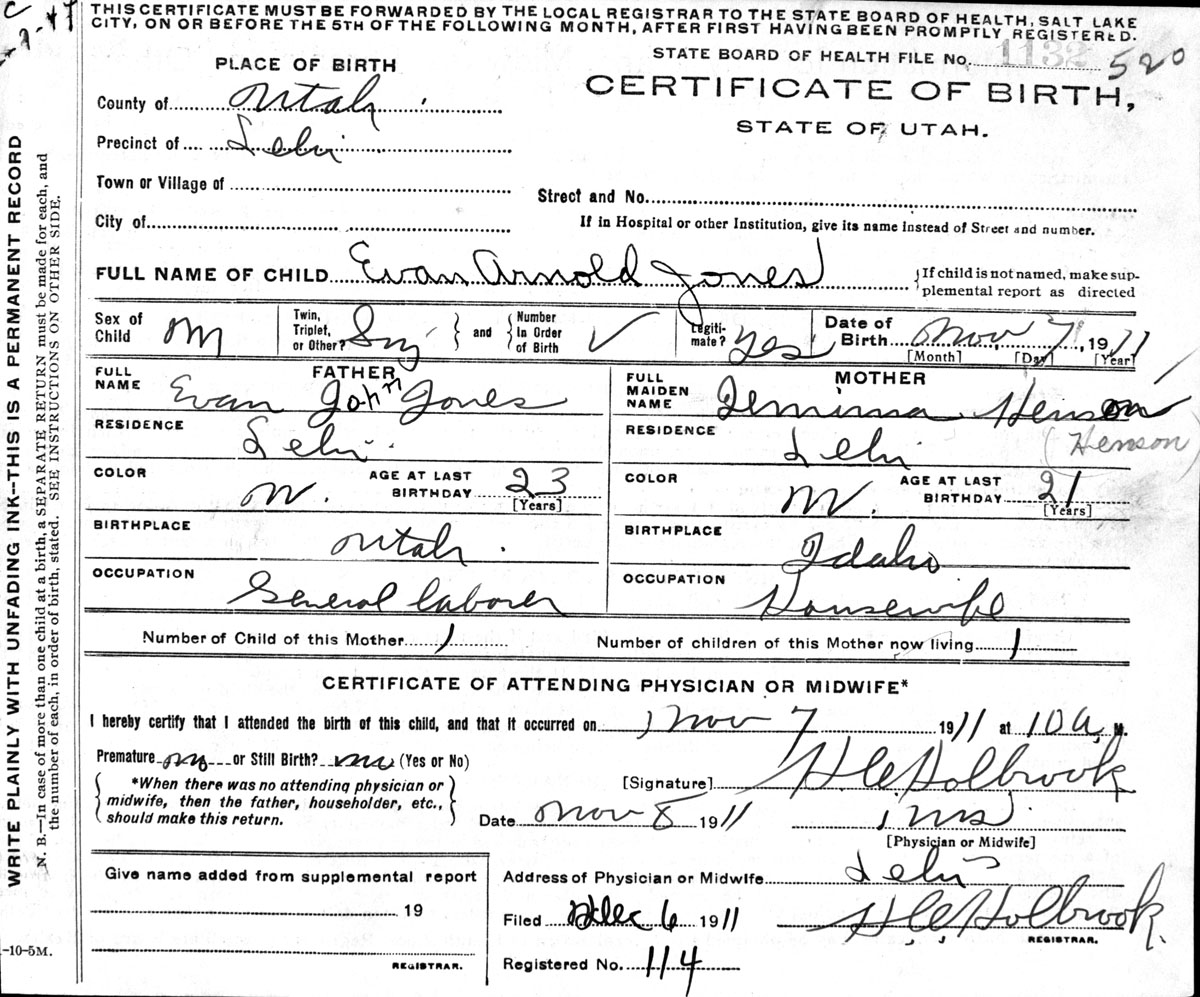 THIS CERTIFICATE MUST BE FORWARDED BY THE LOCAL REGISTRAR TO THE STATE BOARD OF HEALTH, SALT LAKE
CITY, ON OR BEFORE THE 5TH OF THE FOLLOWING MONTH, AFTER FIRST HAVING BEEN PROMPTLY REGISTERED.
STATE BOARD OF HEALTH FILE No. 1132 520
PLACE OF BIRTH
CERTIFICATE OF BIRTH,
STATE OF UTAH.
County of Utah
Precinct of Lehi
Town or Village of
Street and No.
City of
If in Hospital or other Institution, give its name instead of Street and number.
FULL NAME OF CHILD Evan Arnold Jones
{If child is not named, make sup-
plemental report as directed
Sex of Child M
Twin, Triplet, or Other? Sing
and
Number In Order of Birth ✓
Legiti-mate? Yes
Date of Birth Nov 7, 1911
[Month] [Day] [Year]
FATHER
FULL NAME Evan John Jones
RESIDENCE Lehi
COLOR W.
AGE AT LAST BIRTHDAY 23
[Years]
BIRTHPLACE Utah.
OCCUPATION General laborer
MOTHER
FULL MAIDEN NAME Jemima Henson
(Henson)
RESIDENCE Lehi
COLOR W.
AGE AT LAST BIRTHDAY 21
[Years]
BIRTHPLACE Idaho
OCCUPATION Housewife
Number of Child of this Mother 1
Number of children of this Mother now living 1
CERTIFICATE OF ATTENDING PHYSICIAN OR MIDWIFE*
I hereby certify that I attended the birth of this child, and that it occurred on Nov 7 1911 at 10 a M.
Premature no or Still Birth? no (Yes or No)
*When there was no attending physician or
midwife, then the father, householder, etc.,
should make this return.
[Signature] H C Holbrook
Date Nov 8 1911
[Physician or Midwife]
Give name added from supplemental report
19
REGISTRAR.
Address of Physician or Midwife Lehi
Filed Dec 6 1911
H C Holbrook.
REGISTRAR.
Registered No. 114
WRITE PLAINLY WITH UNFADING INK--THIS IS A PERMANENT RECORD
N. B.—In case of more than one child at a birth, a SEPARATE RETURN must be made for each, and
the number of each, in order of birth, stated. SEE INSTRUCTIONS ON OTHER SIDE.
-10-5M.